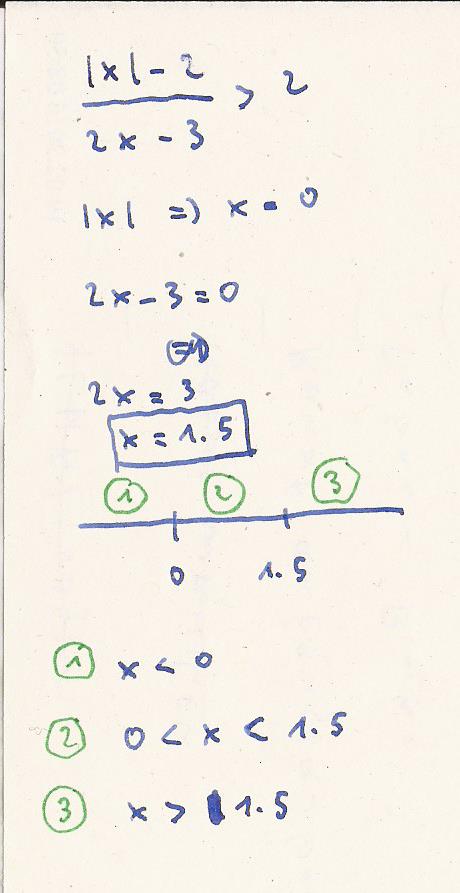 |x| - 2
2x - 3
> 2
|x| => x = 0
2x - 3 = 0
=>
2x = 3
x = 1.5
1 2 3
0 1.5
1 x < 0
2 0 < x < 1.5
3 x > 1.5